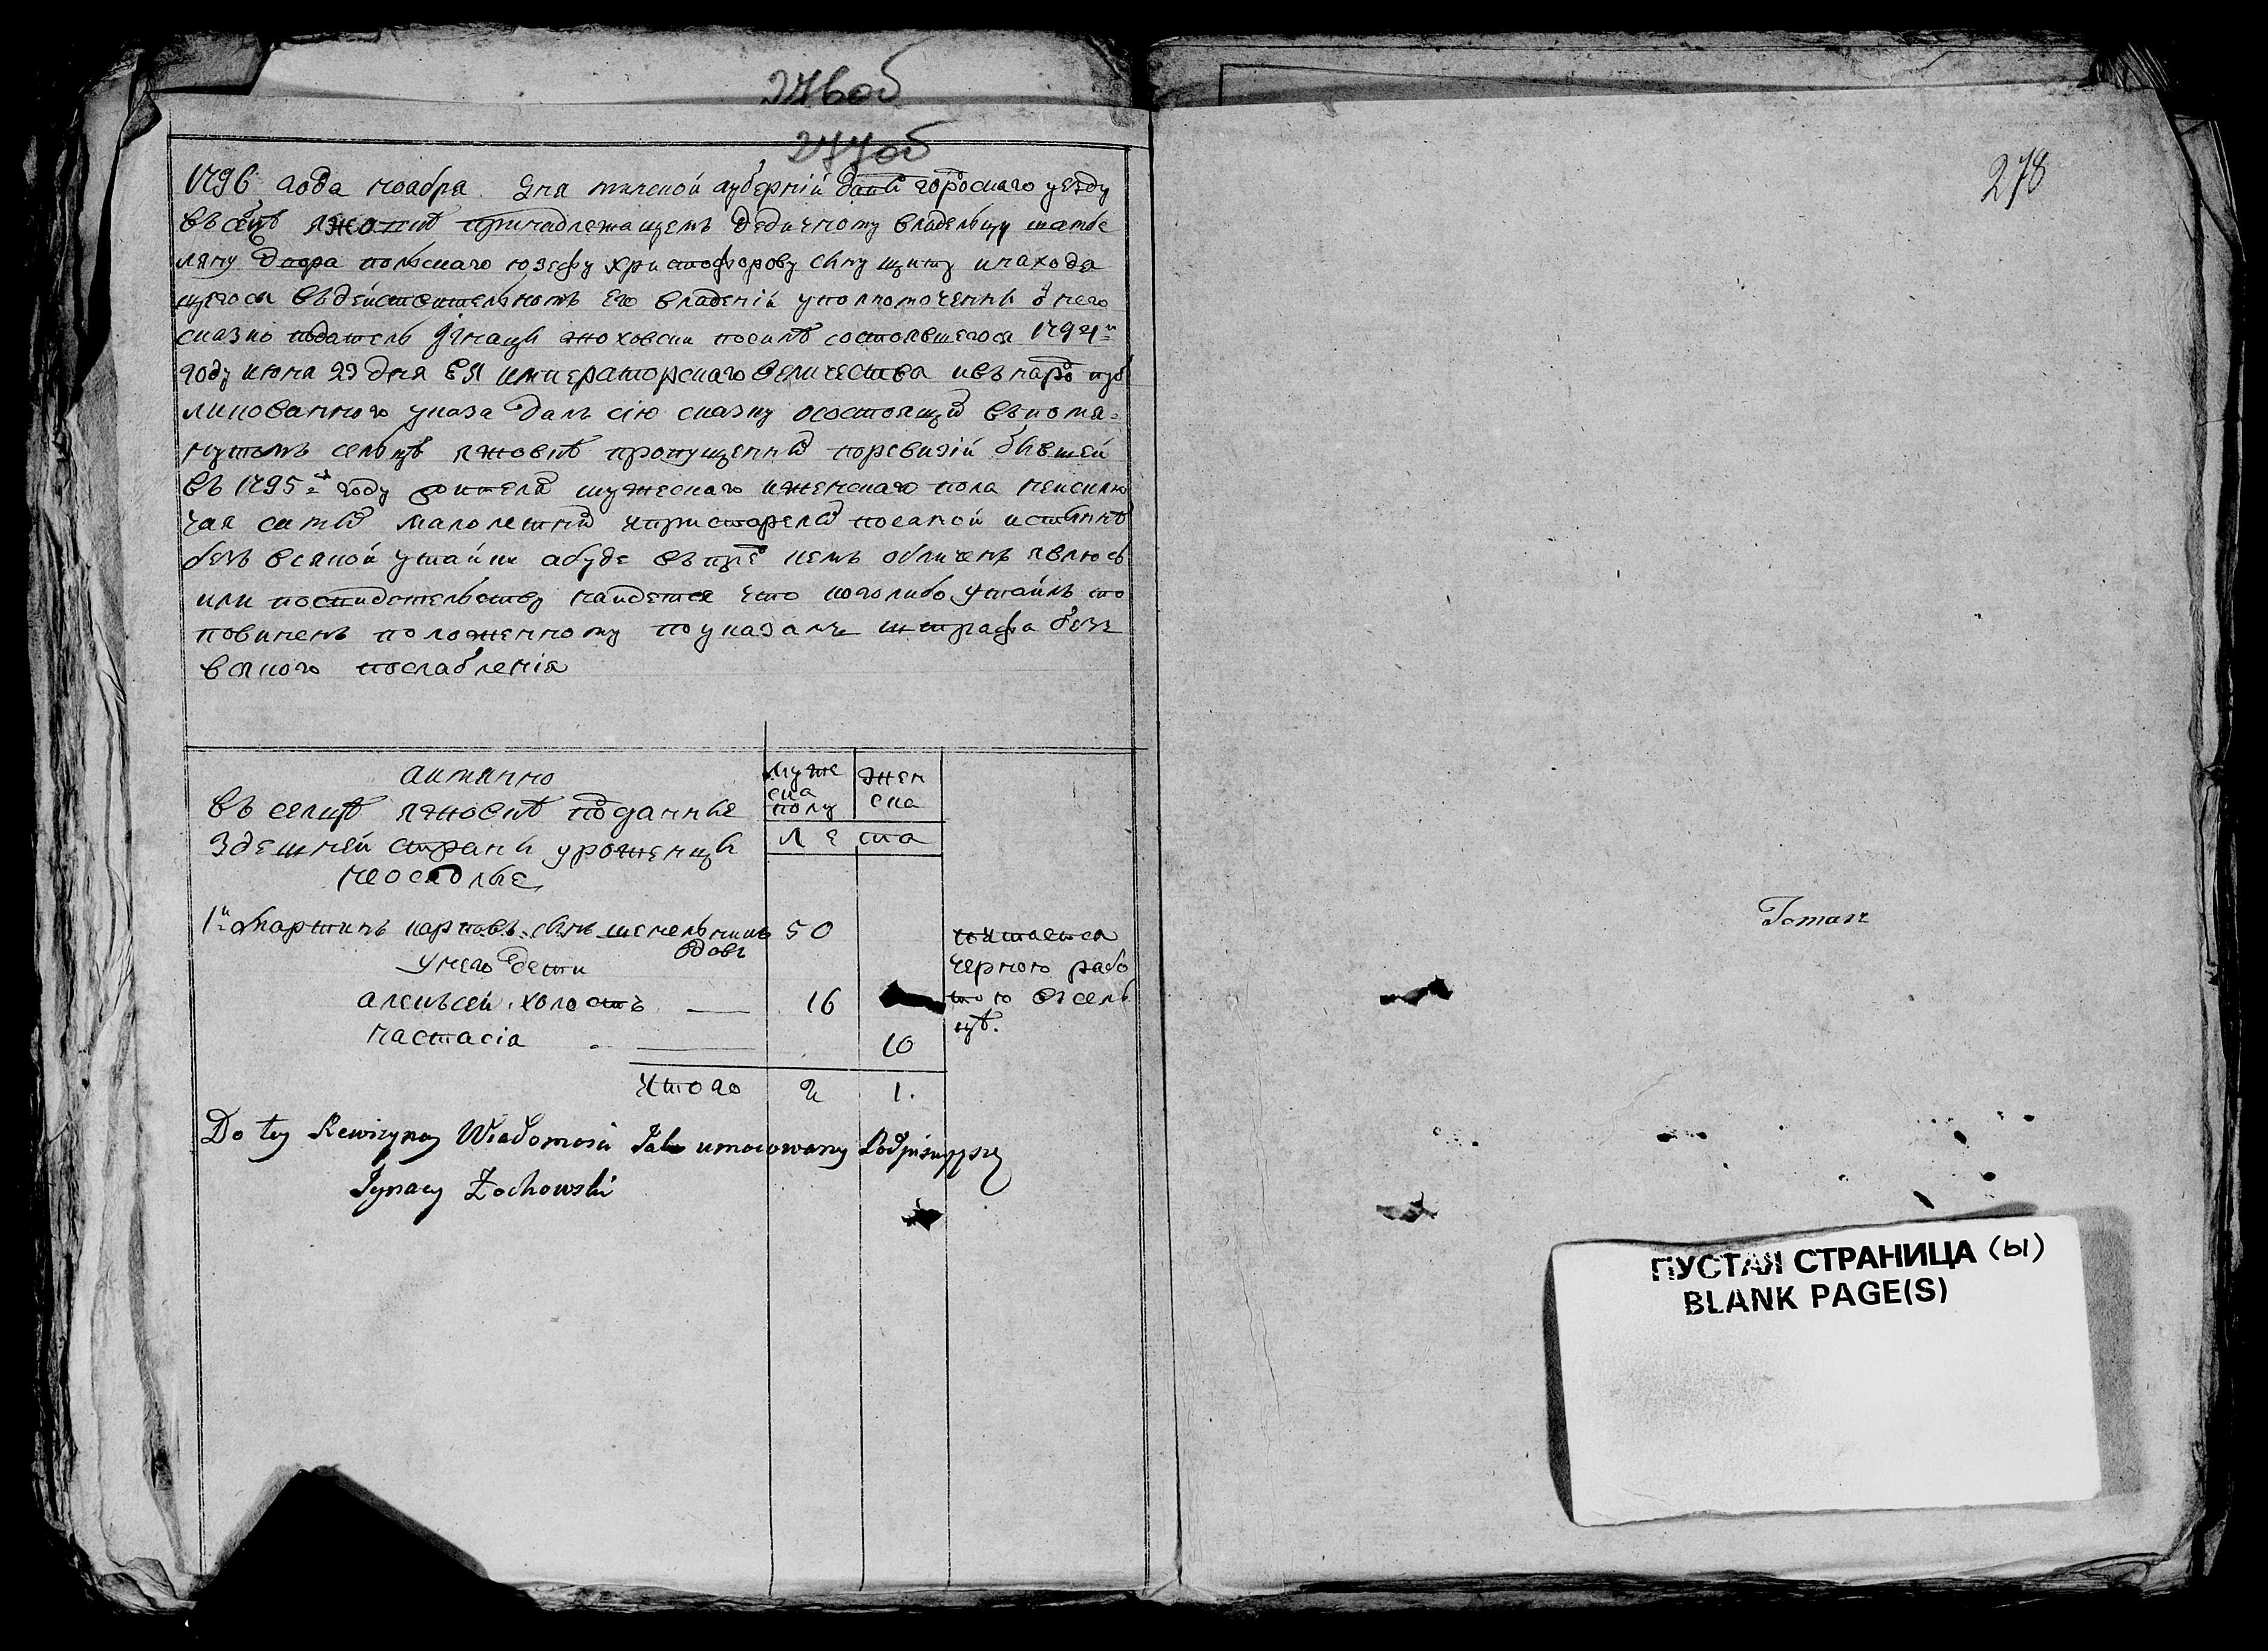 276об
277об
278
1796 года ноября дня минской губерніи давы городскаго уезду
въ селце яжовке принадлежащемъ дедичному владельцу шамбе
ляну двора польскаго юзефу христофорову сыну щиту инаходя
щегося въдействительномъ его владеніи уполномоченны о него
сказко податель Игнацы жоховски посилѣ состоявшегося 1794го
году июня 23 дня ЕЯ императорскаго величества ивънаро пуб
ликованного указа далъ сію сказку осостоящи въпомя=
нутомъ сельцѣ яжовкѣ пропущенны поревизіи бывшей
въ 1795м году жителя мужескаго иженскаго пола неисклю
чая самы малолетны ипристарелы посамой истиннѣ
безъ всякой утайки абуде въпре кемъ обличенъ явлюсь
или посвидетельству найдется что коголибо утаилъ то
повиненъ положенному поуказамъ штрафа безъ
всякого послабленія
аимянно
въ селцѣ яжовкѣ поданные
здешней страны уроженцы
неоседлые
муже
ска
полу
жен
ска
лета
1й мартинъ карповъ сынъ мельникъ 50
вдовъ
унего дети
алексей холостъ 16
настасія 10
питается
черною рабо
тою въсель
цѣ.
итого 2 1.
Do tey Rewizyney Wiadomosci Jako umocowany Podpisuję się
Ignacy Żochowski
Tomasz
ПУСТАЯ СТРАНИЦА (Ы)
BLANK PAGE(S)